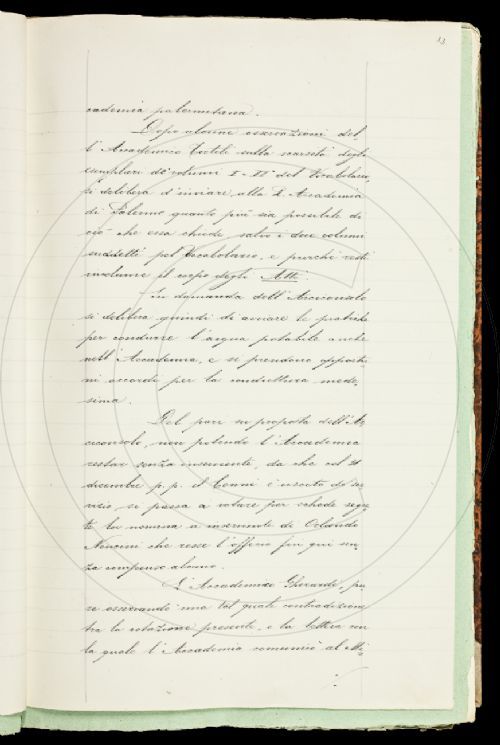 13
cademia palermitana.
Dopo alcune osservazioni del-
l'Accademico Tortoli sulla scarsità degli
esemplari de' volumi I-II del Vocabolario,
si delibera d'inviare alla R. Accademia
di Palermo quanto più sia possibile di
ciò che essa chiede salvo i due volumi
suddetti del Vocabolario, e purchè resti
il corpo degli Atti.
In domanda dell'Arciconsolo
si delibera quindi di avviare le pratiche
per condurre l'acqua potabile anche
nell'Accademia, e si prendono opportu-
ni accordi per la conduttura mede-
sima.
Del pari su proposta dell'Ar-
ciconsolo, non potendo l'Accademia
restar senza inserviente, da che col 31
dicembre p. p. il Conni è uscito di ser-
vizio, si passa a votare per schede segre-
te la nomina a inserviente di Orlando
Nencini che resse l'officio fin qui sen-
za compenso alcuno.
L'Accademico Gherardi, pu-
re osservando una tal quale contradizione
tra la votazione presente, e la lettera con
la quale l'Accademia comunicò al Mi-